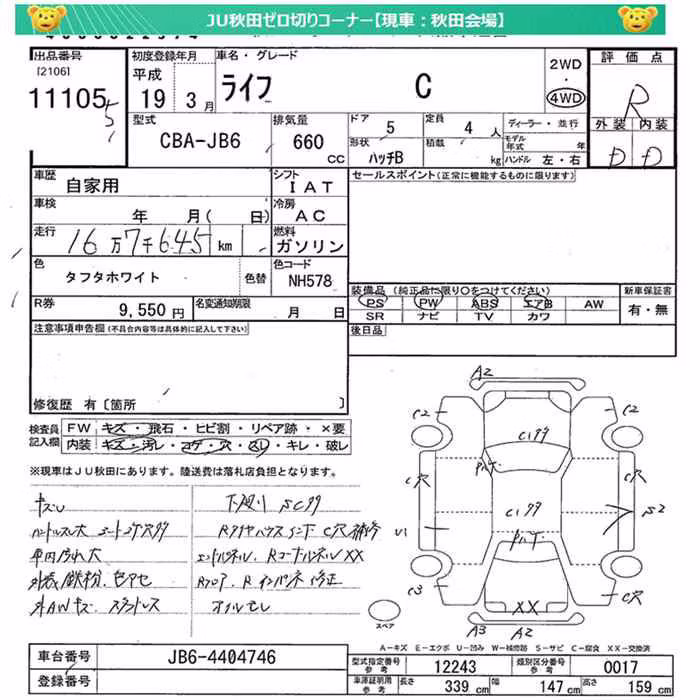 JU秋田ゼロ切りコーナー【現車：秋田会場】
出品番号
[2106]
11105
5
初度登録年月
平成
19 3月
車名・グレード
ライフ C
2WD
・
4WD
評価点
R
外装 内装
D D
型式
CBA-JB6
排気量
660
CC
ドア
5
定員
4 人
形状
ハッチB
積載
kg
ディーラー・並行
モデル年式 年
ハンドル 左・右
車歴
自家用
シフト
I A T
セールスポイント(正常に機能するものに限ります)
車検
年 月( 日)
冷房
A C
走行
16万7千645 km
燃料
ガソリン
色
タフタホワイト
色替
色コード
NH578
R券
9,550円
名変通知期限
月 日
装備品(純正品に限り○をつけてください)
PS PW ABS エアB AW
SR ナビ TV カワ
新車保証書
有・無
後日品
注意事項申告欄(不具合内容等は具体的に記入して下さい)
修復歴 有〔箇所 〕
検査員記入欄
FW キズ・飛石・ヒビ割・リペア跡・×要
内装 キズ・汚レ・コゲ・穴・スレ・キレ・破レ
※現車はJU秋田にあります。陸送費は落札店負担となります。
キズU
ハンドルスレ大 シートコゲ穴サ
車内汚れ大
外装鉄粉.色アセ
外AWキズ・スタッドレス
下廻り SCサ
Rタイヤハウスインナー C穴補修
エンドパネル、Rコーナーパネル XX
Rフロア、Rインパネ修正
オイルモレ
A2
C2
C2
C1サ
C穴
C穴
C1サ
U1
S2
C3
C穴
XX
A3
A2
スペア
A－キズ E－エクボ U－凹み W－補修跡 S－サビ C－腐食 XX－交換済
車台番号
JB6-4404746
登録番号
型式指定番号 参考
12243
類別区分番号 参考
0017
車庫証明用 参考
長さ 339 cm
幅 147 cm
高さ 159 cm